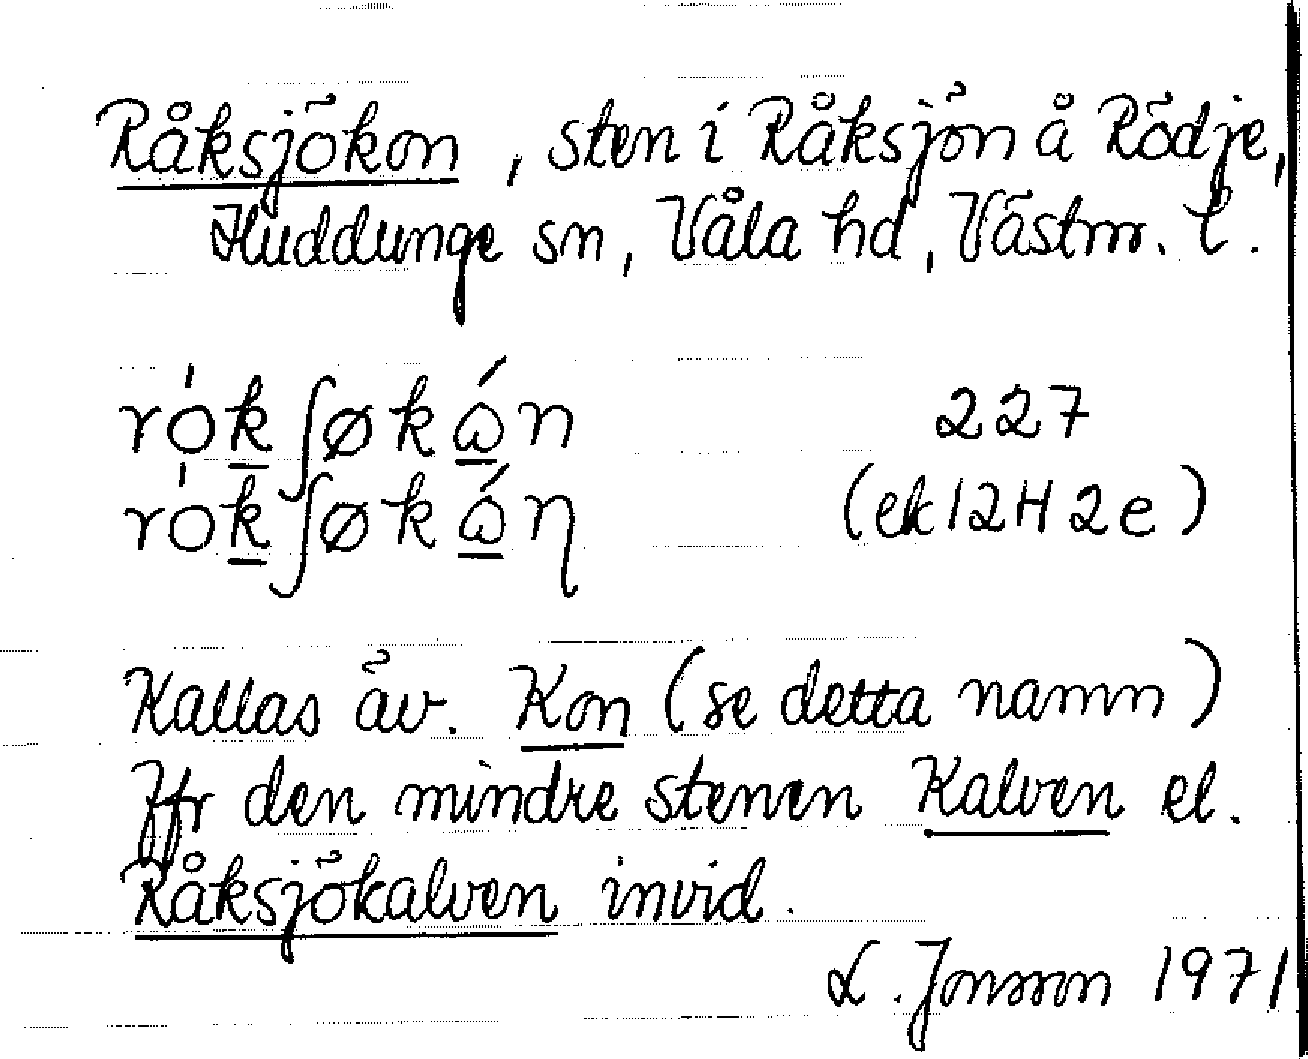 Råksjökon, sten i Råksjön å Rödje,
Huddunge sn, Våla hd, Västm. l.
rók̲ʃøkώ̲n 227
rók̲ʃøkώ̲η (ek12H2e)
Kallas äv. Kon (se detta namn)
Jfr den mindre stenen Kalven el.
Råksjökalven invid.
L. Jonsson 1971